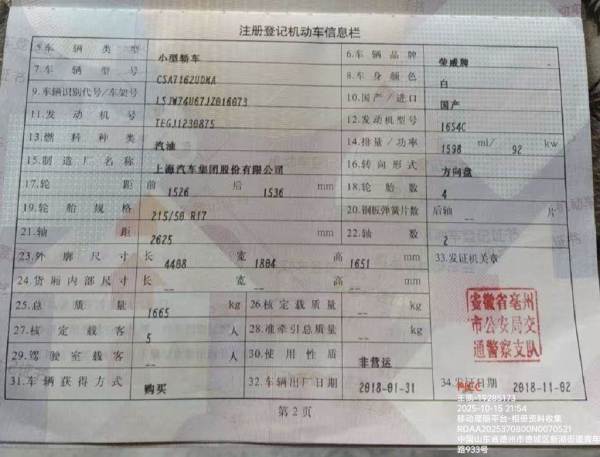 注册登记机动车信息栏
5.车辆类型 小型轿车 6.车辆品牌 荣威牌
7.车辆型号 CSA7162UDMA 8.车身颜色 白
9.车辆识别代号/车架号 LSJW74U67JZ016073 10.国产/进口 国产
11.发动机号 TEGJ1230875 12.发动机型号 16S4C
13.燃料种类 汽油 14.排量/功率 1598 ml/ 92 kw
15.制造厂名称 上海汽车集团股份有限公司 16.转向形式 方向盘
17.轮距 前 1526 后 1536 mm 18.轮胎数 4
19.轮胎规格 215/50 R17 20.钢板弹簧片数 后轴 -- 片
21.轴距 2625 mm 22.轴数 2
23.外廓尺寸 长 4408 宽 1804 高 1651 mm 33.发证机关章
24.货厢内部尺寸 长 -- 宽 -- 高 -- mm
安徽省亳州
市公安局交
通警察支队
25.总质量 1665 kg 26.核定载质量 -- kg
27.核定载客 5 人 28.准牵引总质量 -- kg
29.驾驶室载客 -- 人 30.使用性质 非营运
31.车辆获得方式 购买 32.车辆出厂日期 2018-01-31 34.发证日期 2018-11-02
第2页
2025-10-15 21:54
移动理赔平台-相册资料收集
RDAA2025370800N0070521
路933号